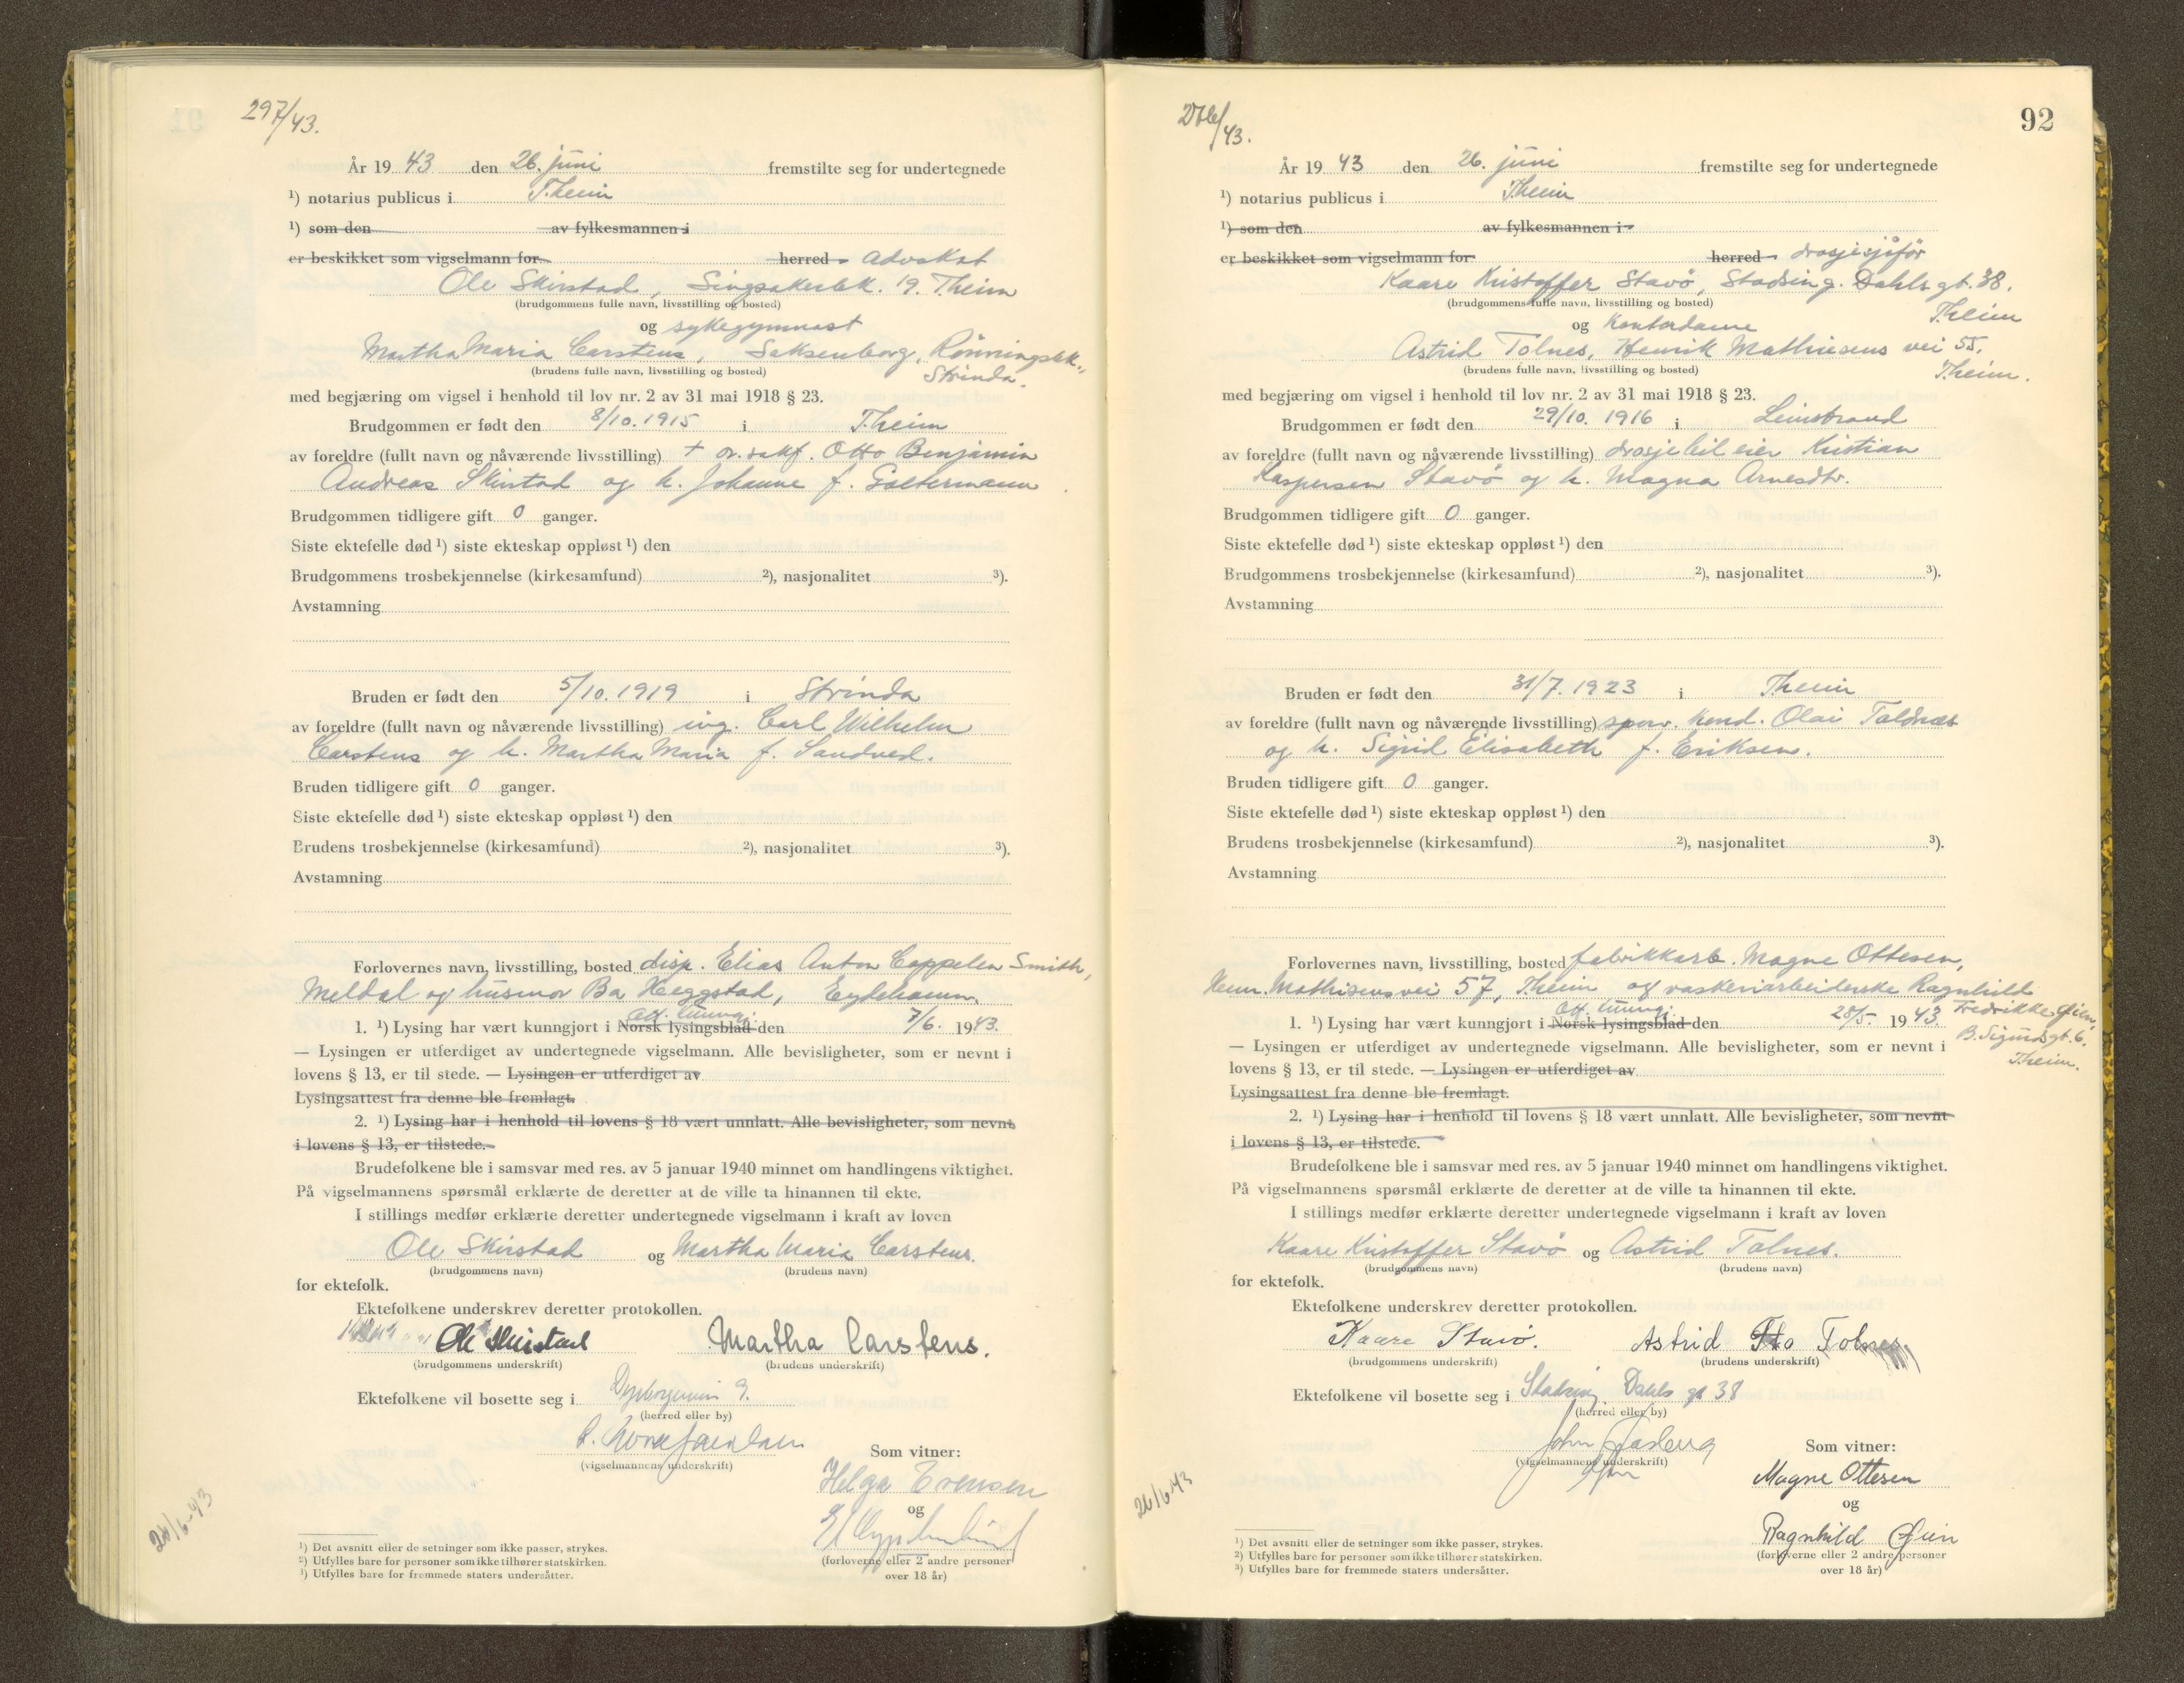 297/43.
År 1943 den 26. juni fremstilte seg for undertegnede
¹) notarius publicus i T.heim
¹) som den av fylkesmannen i
er beskikket som vigselmann for herred - advokat
Ole Skirstad, Singsakerbk. 19. T.heim
(brudgommens fulle navn, livsstilling og bosted)
og sykegymnast
Martha Maria Carstens, Saksenborg, Rönningsbk.,
(brudens fulle navn, livsstilling og bosted) Strinda.
med begjæring om vigsel i henhold til lov nr. 2 av 31 mai 1918 § 23.
Brudgommen er født den 8/10. 1915 i T.heim
av foreldre (fullt navn og nåværende livsstilling) + o.r.sakf. Otto Benjamin
Andreas Skirstad og h. Johanne f. Galtermann.
Brudgommen tidligere gift 0 ganger.
Siste ektefelle død ¹) siste ekteskap oppløst ¹) den
Brudgommens trosbekjennelse (kirkesamfund) ²), nasjonalitet ³).
Avstamning
Bruden er født den 5/10. 1919 i Strinda
av foreldre (fullt navn og nåværende livsstilling) ing. Carl Wilhelm
Carstens og h. Martha Maria f. Sandved.
Bruden tidligere gift 0 ganger.
Siste ektefelle død ¹) siste ekteskap oppløst ¹) den
Brudens trosbekjennelse (kirkesamfund) ²), nasjonalitet ³).
Avstamning
Forlovernes navn, livsstilling, bosted disp. Elias Anton Cappelen Smith,
Meldal og husmor Ba Heggstad, Eydehamn.
1. ¹) Lysing har vært kunngjort i Norsk lysingsblad den 7/6. 1943.
— Lysingen er utferdiget av undertegnede vigselmann. Alle bevisligheter, som er nevnt i
lovens § 13, er til stede. — Lysingen er utferdiget av
Lysingsattest fra denne ble fremlagt.
2. ¹) Lysing har i henhold til lovens § 18 vært unnlatt. Alle bevisligheter, som nevnt
i lovens § 13, er tilstede.
Brudefolkene ble i samsvar med res. av 5 januar 1940 minnet om handlingens viktighet.
På vigselmannens spørsmål erklærte de deretter at de ville ta hinannen til ekte.
I stillings medfør erklærte deretter undertegnede vigselmann i kraft av loven
Ole Skirstad og Martha Maria Carstens.
(brudgommens navn) (brudens navn)
for ektefolk.
Ektefolkene underskrev deretter protokollen.
Ole Skirstad Martha Carstens.
(brudgommens underskrift) (brudens underskrift)
Ektefolkene vil bosette seg i 9.
(herred eller by)
(vigselmannens underskrift) Som vitner:
Helga
og
(forloverne eller 2 andre personer
over 18 år)
26/6-43
¹) Det avsnitt eller de setninger som ikke passer, strykes.
²) Utfylles bare for personer som ikke tilhører statskirken.
³) Utfylles bare for fremmede staters undersåtter.
92
276/43.
År 1943 den 26. juni fremstilte seg for undertegnede
¹) notarius publicus i T.heim
¹) som den av fylkesmannen i
er beskikket som vigselmann for herred - drosjesjåför
Kaare Kristoffer Stavö, Stadsing. Dahls gt. 38.
(brudgommens fulle navn, livsstilling og bosted) T.heim
og kontordame
Astrid Tolnes, Henrik Mathiesens vei 55.
(brudens fulle navn, livsstilling og bosted) T.heim.
med begjæring om vigsel i henhold til lov nr. 2 av 31 mai 1918 § 23.
Brudgommen er født den 29/10. 1916 i Leinstrand
av foreldre (fullt navn og nåværende livsstilling) drosjebileier Kristian
Kaspersen Stavö og h. Magna Arnesdtr.
Brudgommen tidligere gift 0 ganger.
Siste ektefelle død ¹) siste ekteskap oppløst ¹) den
Brudgommens trosbekjennelse (kirkesamfund) ²), nasjonalitet ³).
Avstamning
Bruden er født den 31/7. 1923 i T.heim
av foreldre (fullt navn og nåværende livsstilling) sporv. kond. Olai Toldnes
og h. Sigrid Elisabeth f. Eriksen.
Bruden tidligere gift 0 ganger.
Siste ektefelle død ¹) siste ekteskap oppløst ¹) den
Brudens trosbekjennelse (kirkesamfund) ²), nasjonalitet ³).
Avstamning
Forlovernes navn, livsstilling, bosted fabrikkarb. Magne Ottesen,
Henr. Mathisens vei 57, T.heim og vaskeriarbeiderske Ragnhild
1. ¹) Lysing har vært kunngjort i Norsk lysingsblad den 28/5. 1943. Fredrikke Öien,
— Lysingen er utferdiget av undertegnede vigselmann. Alle bevisligheter, som er nevnt i B. Sigurdsgt. 6,
lovens § 13, er til stede. — Lysingen er utferdiget av T.heim.
Lysingsattest fra denne ble fremlagt.
2. ¹) Lysing har i henhold til lovens § 18 vært unnlatt. Alle bevisligheter, som nevnt
i lovens § 13, er tilstede.
Brudefolkene ble i samsvar med res. av 5 januar 1940 minnet om handlingens viktighet.
På vigselmannens spørsmål erklærte de deretter at de ville ta hinannen til ekte.
I stillings medfør erklærte deretter undertegnede vigselmann i kraft av loven
Kaare Kristoffer Stavö og Astrid Tolnes.
(brudgommens navn) (brudens navn)
for ektefolk.
Ektefolkene underskrev deretter protokollen.
Kaare Stavö. Astrid Tolnes
(brudgommens underskrift) (brudens underskrift)
Ektefolkene vil bosette seg i Stadsing Dahls gt 38
(herred eller by)
John
(vigselmannens underskrift) Som vitner:
Magne Ottesen
og
Ragnhild Øien
(forloverne eller 2 andre personer
over 18 år)
26/6-43
¹) Det avsnitt eller de setninger som ikke passer, strykes.
²) Utfylles bare for personer som ikke tilhører statskirken.
³) Utfylles bare for fremmede staters undersåtter.